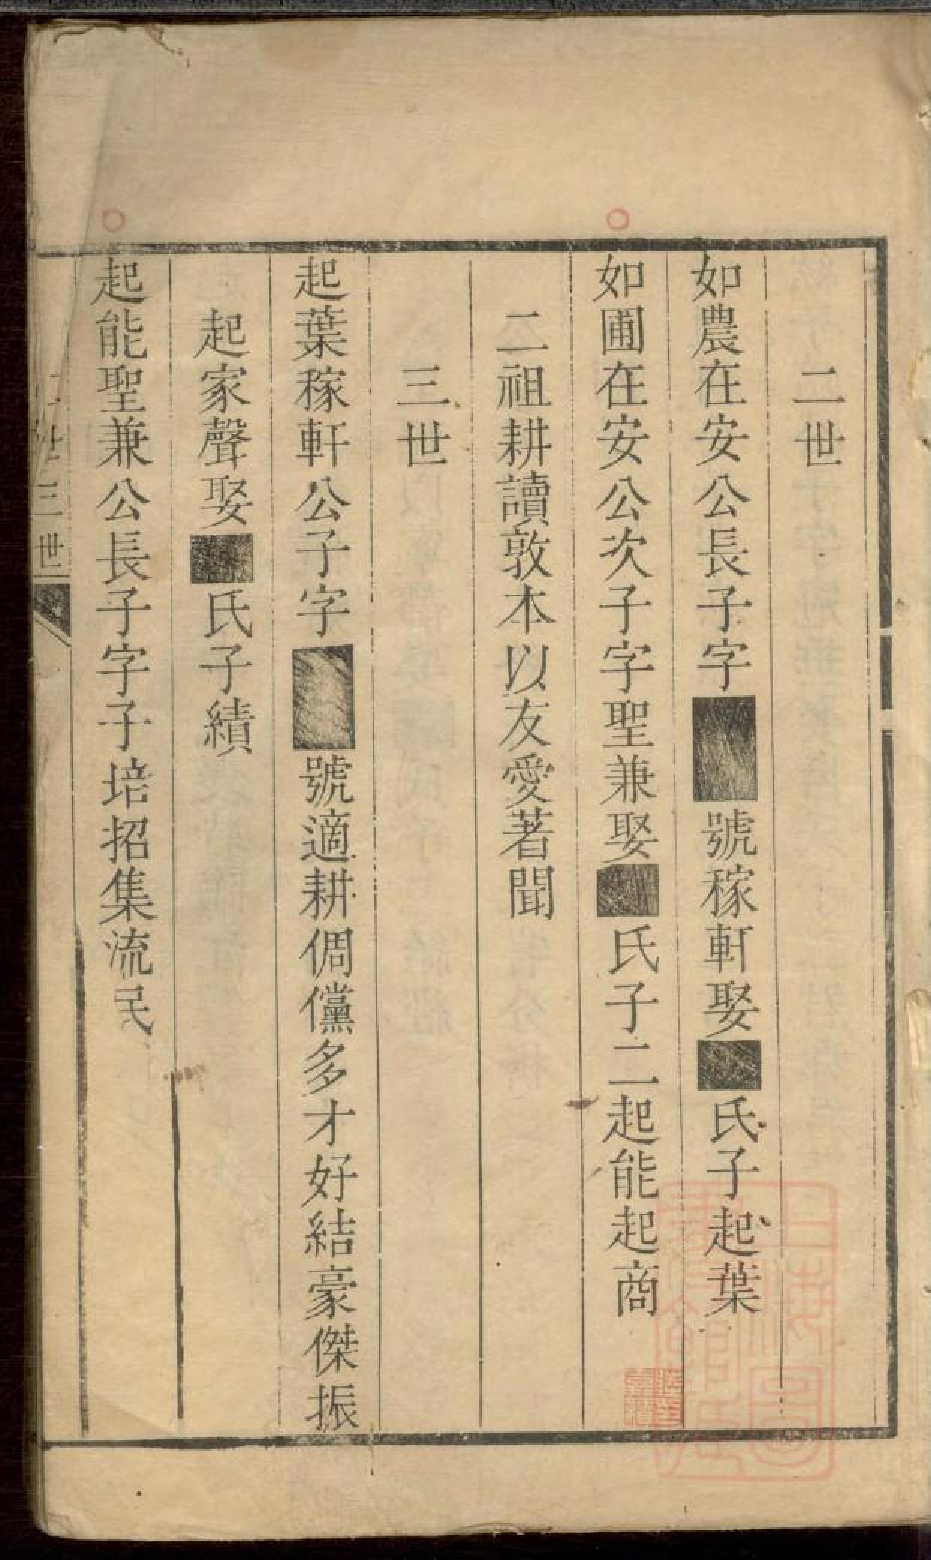 二世
如農在安公長子字■號稼軒娶■氏子起葉
如圃在安公次子字聖兼娶■氏子二起能起商
二祖耕讀敦本以友愛著聞
三世
起葉稼軒公子字■號適耕倜儻多才好結豪傑振
起家聲娶■氏子績
起能聖兼公長子字子培招集流民
二世三世